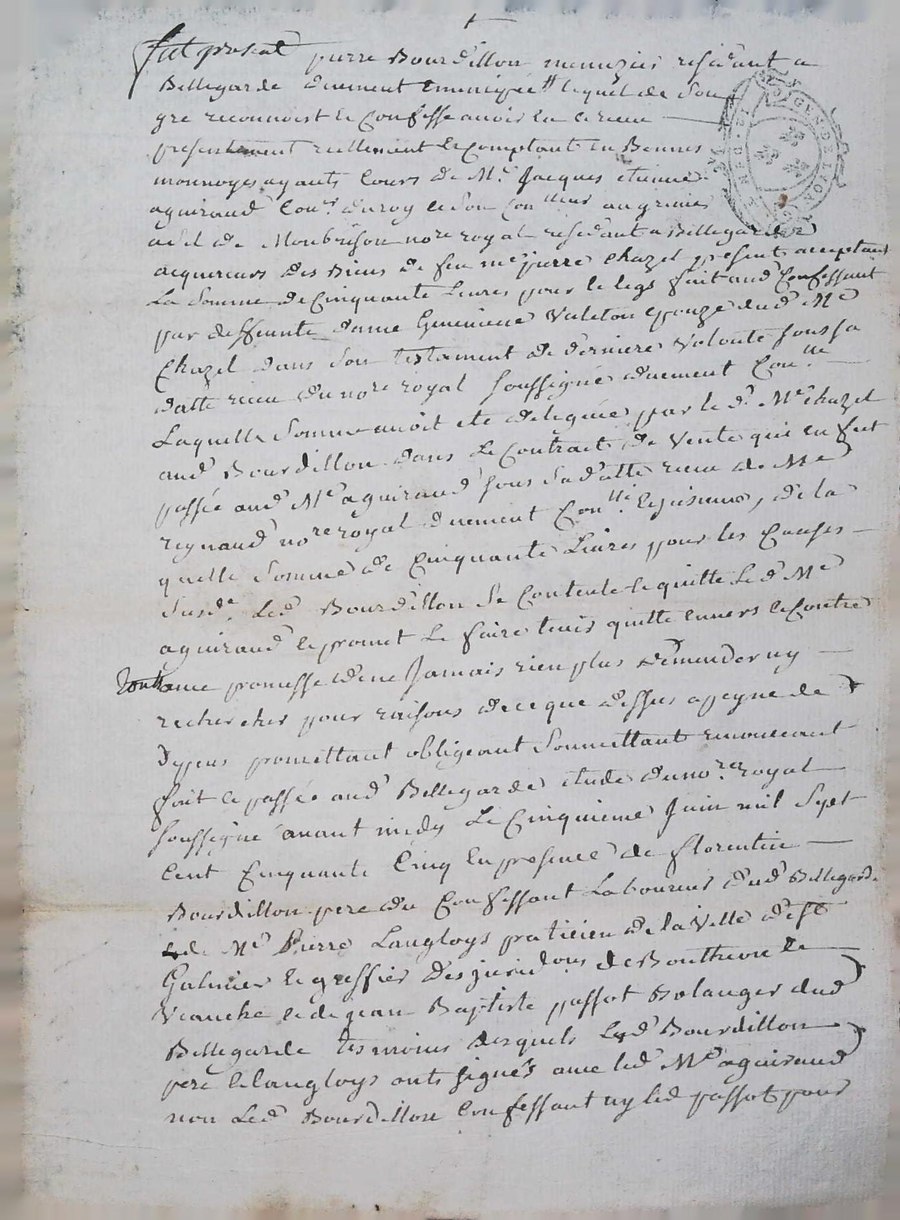 fut present pierre Bourdillon menuzier residant a
Bellegarde duement lequel de son
gre reconnoist et Confesse avoir eu et recu
presentement reellement et Comptant en Bonnes
monnoyes ayants Cours de Me Jacques etienne
aguiraud Coner du roy et son au grenier
a sel de Montbrison nore royal residant a Bellegarde
acquereur des Biens de feu me pierre Chazel present acceptant
La somme de Cinquante Livres pour le legs fait aud Confessant
par deffunte dame Genevieve Valeton epouze dud Me
Chazel dans son testament de derniere volonte sous sa
datte recu du nore royal soussigné duement Conlle
Laquelle somme avoit ete deleguée par le d. Me Chazel
aud Bourdillon dans le Contract de vente qui en fut
passée aud Me aguiraud sous sa datte recu de Me
reynaud nore royal duement Conlle de la
quelle somme de Cinquante Livres pour les Causes
susde Led Bourdillon se Contente et quitte le d Me
aguiraud et promet le faire tenir quitte envers et Contre
Tous avec promesse de ne Jamais rien plus demender ny
rechercher pour raisons de ce que dessus a peyne de
depens promettant obligeant soumettant renoncant
fait et passée aud Bellegarde etude du nore royal
soussigné avant midy Le Cinquieme Juin mil sept
Cent Cinquante Cinq en presence de florentin
Bourdillon pere du Confessant Laboureur dud Bellegarde
et de Me Pierre Langloys praticien de la ville de St
Galmier et greffier des juridons de Boutheon et
Veauche et de jean Baptiste passot Bolanger dud
Bellegarde tesmoins desquels Led Bourdillon
pere et langloys ont signés avec led Me aguiraud
non Led Bourdillon Confessant ny led passot pour
GEN DE LYON